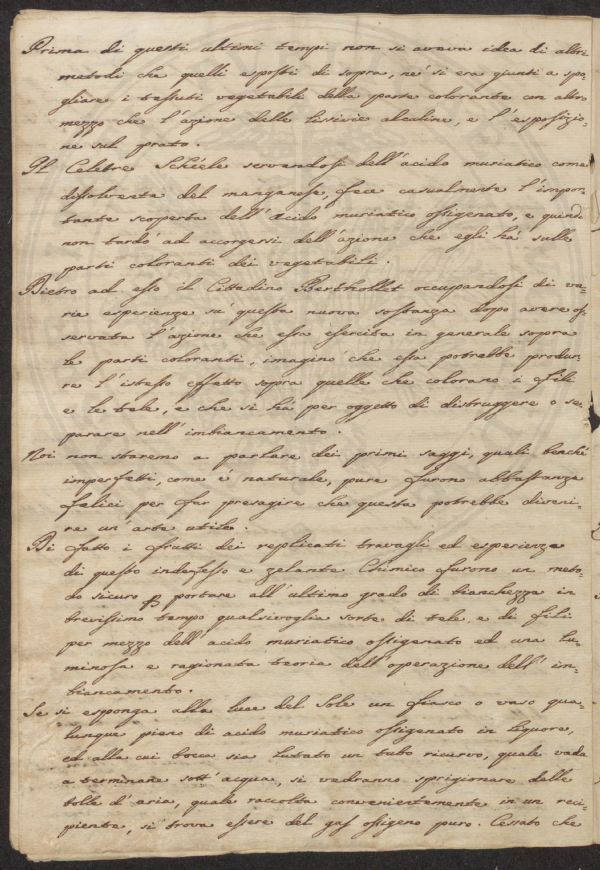 Prima di questi ultimi tempi non si aveva idea di altri
metodi che quelli esposti di sopra, ne' si era giunti a spo,,
gliare i tessuti vegetabili della parte colorante con altro
mezzo che l'azione delle lissivie alcaline, e l'esposizio,,
ne sul prato.
Il Celebre Schéele servendosi dell'acido muriatico come
dissolvente del manganese, fece casualmente l'impor,,
tante scoperta dell'acido muriatico ossigenato, e quindi
non tardò ad accorgersi dell'azione che egli há sulle
parti coloranti dei vegetabili.
Dietro ad esso il Cittadino Berthollet occupandosi di va,,
rie esperienze su questa nuova sostanza dopo avere os,,
servata l'azione che essa esercita in generale sopra
le parti coloranti, imaginò che essa potrebbe produr,,
re l'istesso effetto sopra quelle che colorano i fili
e le tele, e che si há per oggetto di distruggere o se,,
parare nell'imbiancamento.
Noi non staremo a parlare dei primi saggi, quali benché
imperfetti, come é naturale, pure furono abbastanza
felici per far presagire che questa potrebbe diveni,,
re un'arte utile.
Di fatto i frutti dei replicati travagli ed esperienze
di questo indefesso e zelante Chimico furono un meto,,
do sicuro p portare all'ultimo grado di bianchezza in
brevissimo tempo qualsivoglia sorte di tele, e di fili
per mezzo dell'acido muriatico ossigenato ed una lu,,
minosa e ragionata teoria dell'operazione dell'im,,
biancamento.
Se si esponga alla luce del Sole un fiasco o vaso qua,,
lunque pieno di acido muriatico ossigenato in liquore,
ed alla cui bocca sia lutato un tubo ricurvo, quale vada
a terminare sott'acqua, si vedranno sprigionare delle
bolle d'aria, quale raccolta convenientemente in un reci,,
piente, si trova essere del gas ossigeno puro. Cessato che